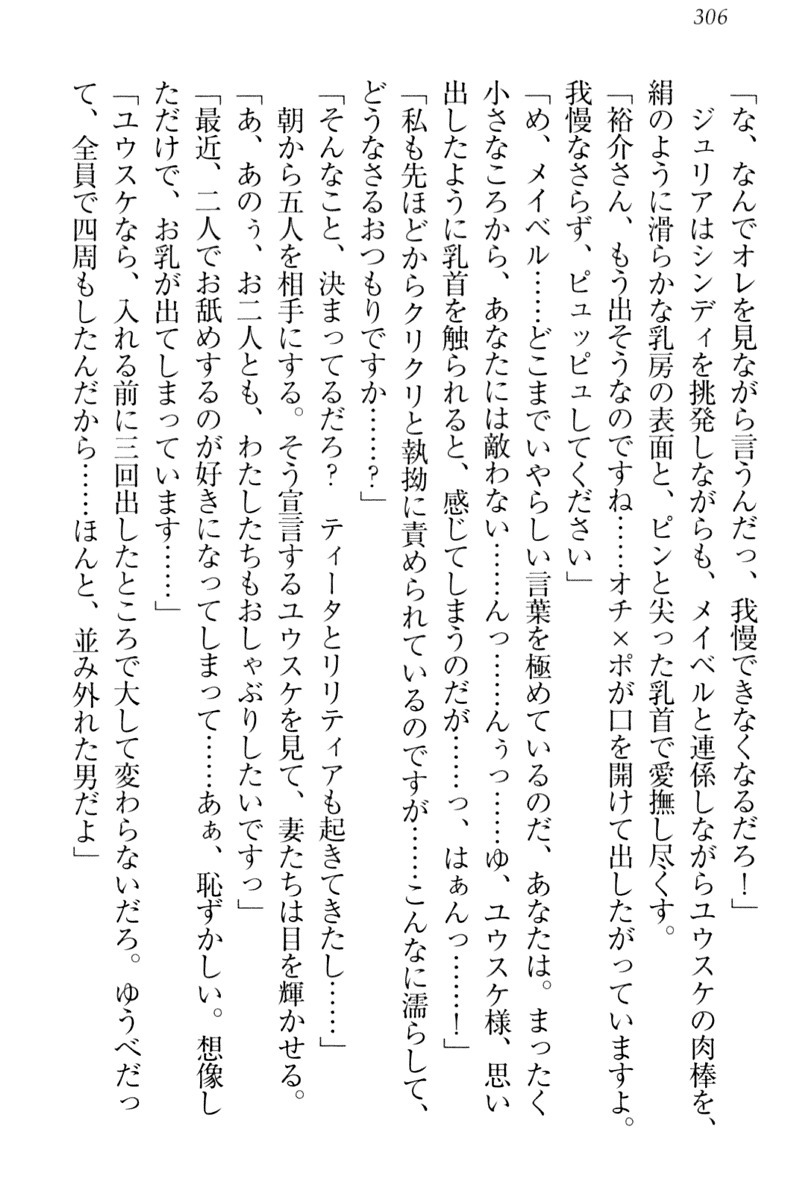 306
「な、なんでオレを見ながら言うんだっ、我慢できなくなるだろ！」
　ジュリアはシンディを挑発しながらも、メイベルと連係しながらユウスケの肉棒を、
絹のように滑らかな乳房の表面と、ピンと尖った乳首で愛撫し尽くす。
「裕介さん、もう出そうなのですね……オチ×ポが口を開けて出したがっていますよ。
我慢なさらず、ピュッピュしてください」
「め、メイベル……どこまでいやらしい言葉を極めているのだ、あなたは。まったく
小さなころから、あなたには敵わない……んっ……んぅっ……ゆ、ユウスケ様、思い
出したように乳首を触られると、感じてしまうのだが……っ、はぁんっ……！」
「私も先ほどからクリクリと執拗に責められているのですが……こんなに濡らして、
どうなさるおつもりですか……？」
「そんなこと、決まってるだろ？　ティータとリリティアも起きてきたし……」
　朝から五人を相手にする。そう宣言するユウスケを見て、妻たちは目を輝かせる。
「あ、あのぅ、お二人とも、わたしたちもおしゃぶりしたいですっ」
「最近、二人でお舐めするのが好きになってしまって……あぁ、恥ずかしい。想像し
ただけで、お乳が出てしまっています……」
「ユウスケなら、入れる前に三回出したところで大して変わらないだろ。ゆうべだっ
て、全員で四周もしたんだから……ほんと、並み外れた男だよ」